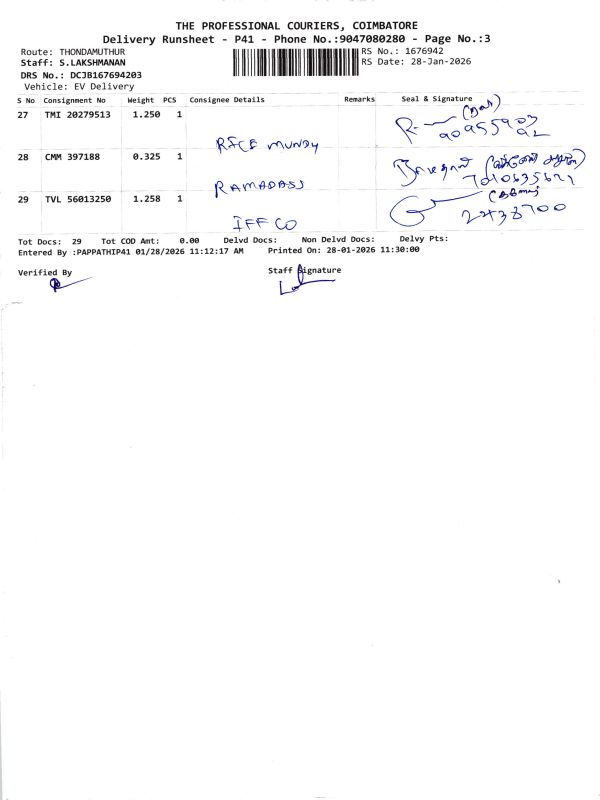 THE PROFESSIONAL COURIERS, COIMBATORE
Delivery Runsheet - P41 - Phone No.:9047080280 - Page No.:3
Route: THONDAMUTHUR
RS No.: 1676942
Staff: S.LAKSHMANAN
RS Date: 28-Jan-2026
DRS No.: DCJB167694203
Vehicle: EV Delivery
S No Consignment No Weight PCS Consignee Details Remarks Seal & Signature
27 TMI 20279513 1.250 1
28 CMM 397188 0.325 1
RAMADASS
7010635621
29 TVL 56013250 1.258 1
IFFCO
2438700
Tot Docs: 29 Tot COD Amt: 0.00 Delvd Docs: Non Delvd Docs: Delvy Pts:
Entered By :PAPPATHIP41 01/28/2026 11:12:17 AM Printed On: 28-01-2026 11:30:00
Verified By
Staff Signature